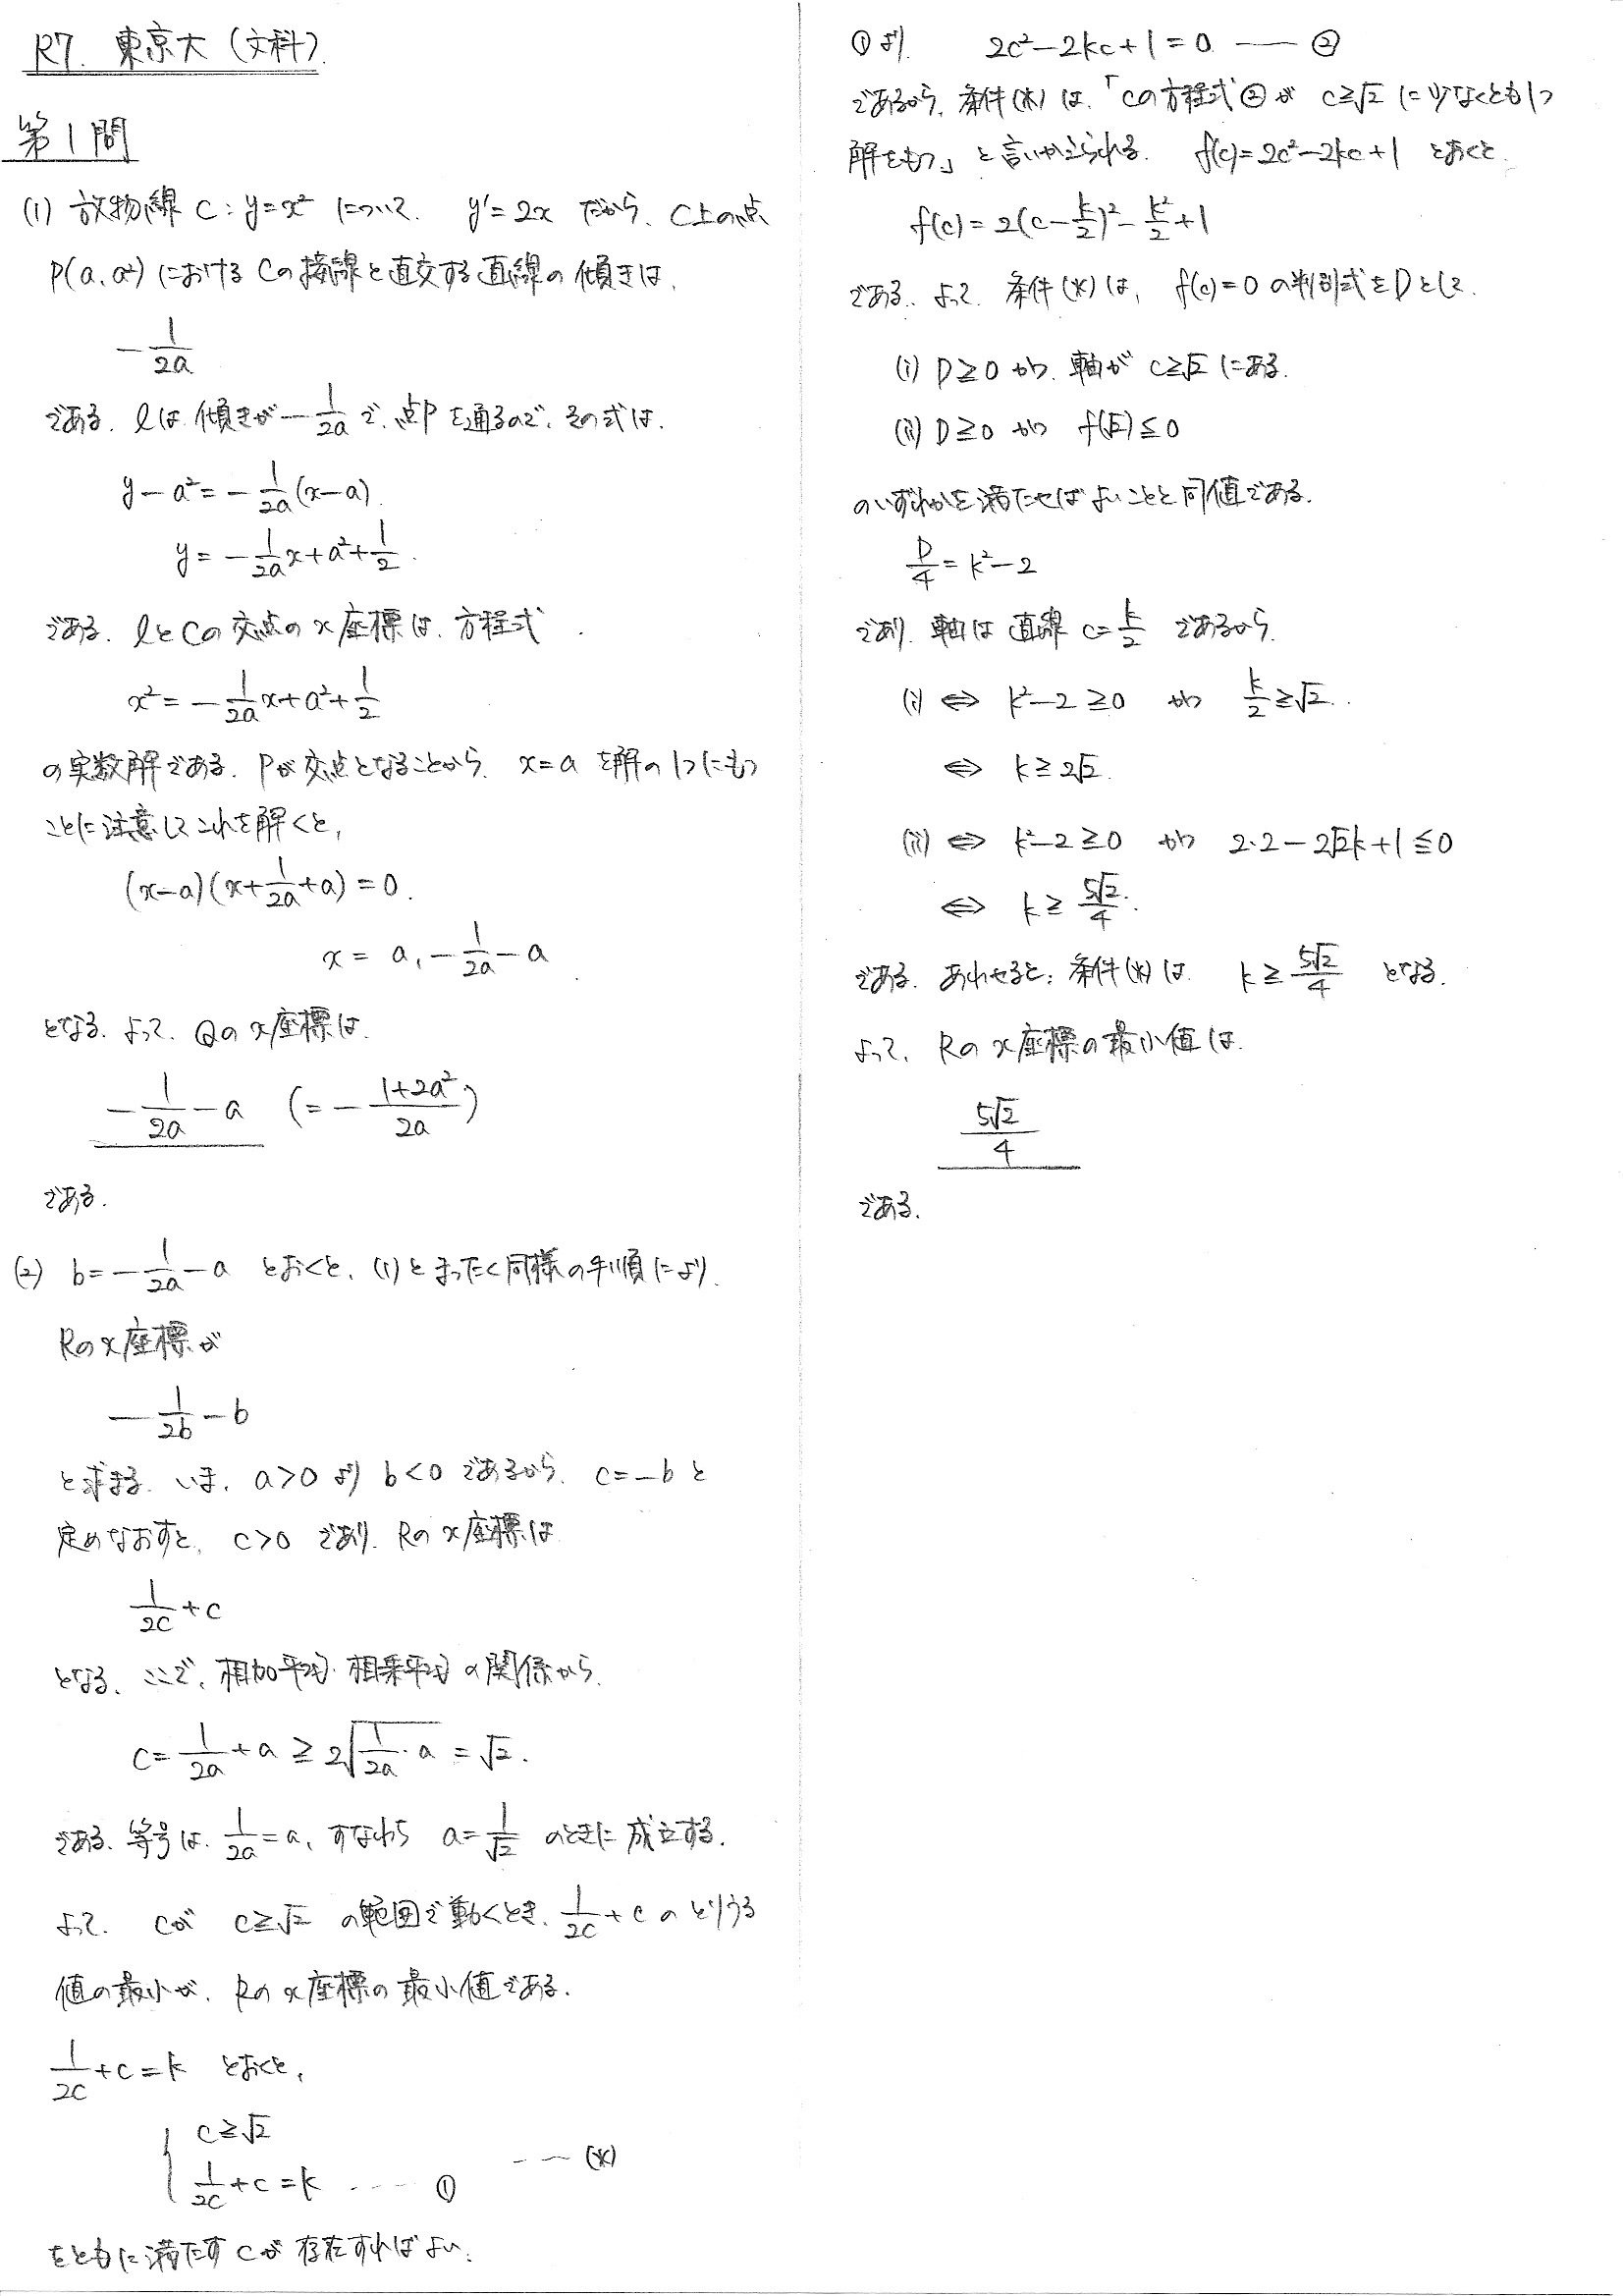 R7. 東京大（文科）.
第1問
(1) 放物線 C: y=x² について. y'=2x だから, C上の点
P(a, a²) におけるCの接線と直交する直線の傾きは,
-1/2a
である. lは傾きが -1/2a で, 点Pを通るので, その式は.
y-a²=-1/2a(x-a).
y=-1/2a x+a²+1/2.
である. lとCの交点のx座標は, 方程式
x²=-1/2a x+a²+1/2
の実数解である. Pが交点となることから, x=a を解の1つにもつ
ことに注意してこれを解くと,
(x-a)(x+1/2a+a)=0.
x = a, -1/2a-a
となる. よって, Qのx座標は.
-1/2a-a (=-(1+2a²)/2a)
である.
(2) b=-1/2a-a とおくと, (1)とまったく同様の手順により.
Rのx座標が
-1/2b-b
と求まる. いま, a>0 より b<0 であるから, c=-b と
定めなおすと, c>0 であり, Rのx座標は
1/2c+c
となる. ここで, 相加平均・相乗平均の関係から.
c=1/2a+a≧2√(1/2a・a)=√2.
である. 等号は, 1/2a=a, すなわち a=1/√2 のときに成立する.
よって, cが c≧√2 の範囲で動くとき, 1/2c+c のとりうる
値の最小が, Rのx座標の最小値である.
1/2c+c=k とおくと,
{ c≧√2
1/2c+c=k ---- ① --- (※)
をともに満たすcが存在すればよい.
①より. 2c²-2kc+1=0 ― ②
であるから, 条件(※)は,「cの方程式②が c≧√2 に少なくとも1つ
解をもつ」と言いかえられる. f(c)=2c²-2kc+1 とおくと.
f(c)=2(c-k/2)²-k²/2+1
である. よって, 条件(※)は, f(c)=0の判別式をDとして.
(i) D≧0 かつ, 軸が c≧√2 にある.
(ii) D≧0 かつ f(√2)≦0
のいずれかを満たせばよいことと同値である.
D/4=k²-2
であり, 軸は直線 c=k/2 であるから.
(i) ⇔ k²-2≧0 かつ k/2≧√2.
⇔ k≧2√2.
(ii) ⇔ k²-2≧0 かつ 2・2-2√2k+1≦0
⇔ k≧5√2/4.
である. あわせると, 条件(※)は k≧5√2/4 となる.
よって, Rのx座標の最小値は.
5√2/4
である.